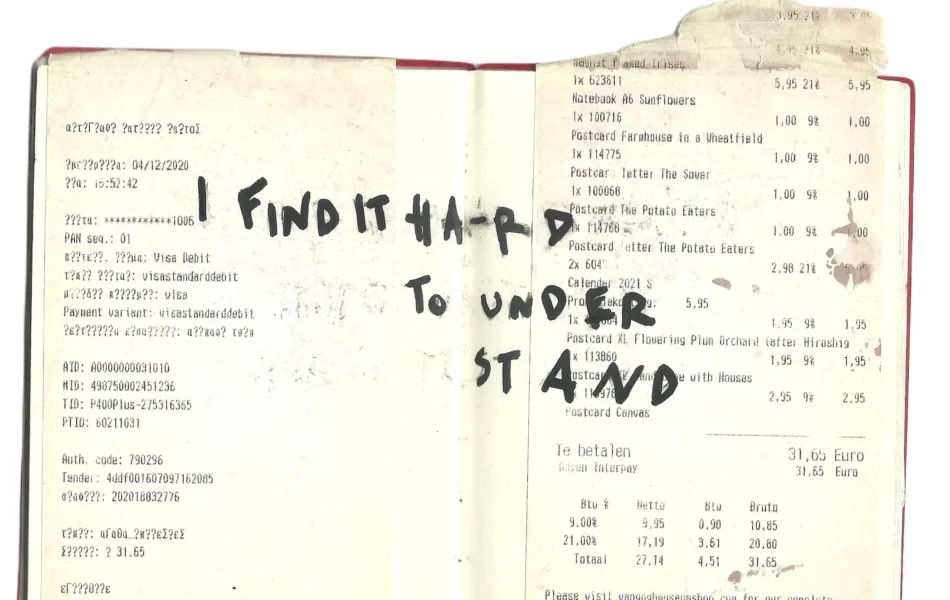 α?τ?Γ?αφ? ?ατ???? ?α?ταΣ
?με??μ???α: 04/12/2020
??α: 15:52:42
???τα: ************1006
PAN seq.: 01
Visa Debit
visastandarddebit
visa
Payment variant: visastandarddebit
AID: A0000000031010
MID: 498750002451236
TID: P400Plus-275316365
PTID: 60211031
Auth. code: 790296
Tender: 4ddf001607097162085
202018832776
Σ?????: ? 31.65
εΓ???θ??ε
I FIND IT HA-RD
TO UNDER
STAND
3,95 21%
4,95 21% 4,95
Magnet Framed Irises
1x 623611 5,95 21% 5,95
Notebook A6 Sunflowers
1x 100716 1,00 9% 1,00
Postcard Farmhouse in a Wheatfield
1x 114775 1,00 9% 1,00
Postcard letter The Sower
1x 100068 1,00 9% 1,00
Postcard The Potato Eaters
1x 114768 1,00 9% 1,00
Postcard letter The Potato Eaters
2x 604 2,98 21%
Calender 2021 S
5,95
1x 1,95 9% 1,95
Postcard XL Flowering Plum Orchard (after Hiroshig
1x 113860 1,95 9% 1,95
Postcard XL with Houses
1x 2,95 9% 2,95
Postcard Canvas
Te betalen 31,65 Euro
Interpay 31.65 Euro
Btw % Netto Btw Bruto
9.00% 9,95 0,90 10,85
21,00% 17,19 3,61 20,80
Totaal 27,14 4,51 31,65
Please visit vangoghmuseumshop.com for our complete